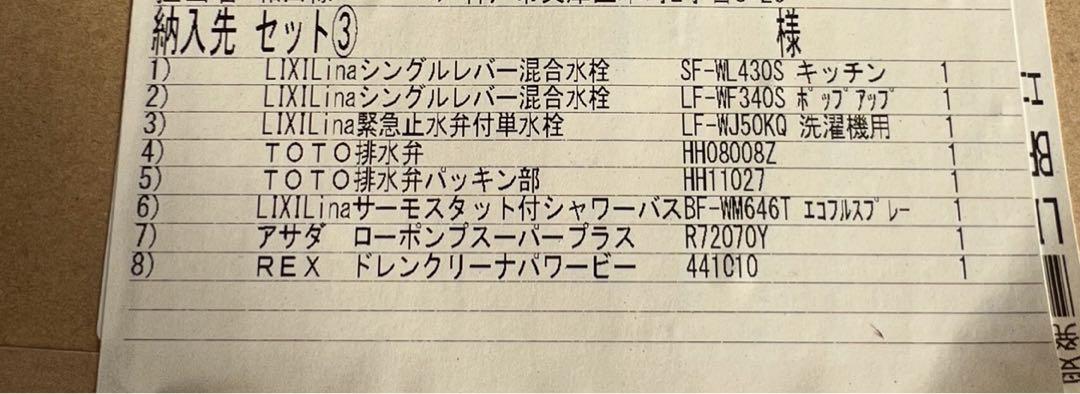 納入先 セット③ 様
1) LIXILinaシングルレバー混合水栓 SF-WL430S キッチン 1
2) LIXILinaシングルレバー混合水栓 LF-WF340S ﾎﾟｯﾌﾟｱｯﾌﾟ 1
3) LIXILina緊急止水弁付単水栓 LF-WJ50KQ 洗濯機用 1
4) ＴＯＴＯ排水弁 HH08008Z 1
5) ＴＯＴＯ排水弁パッキン部 HH11027 1
6) LIXILinaサーモスタット付シャワーバスBF-WM646T ｴｺﾌﾙｽﾌﾟﾚｰ 1
7) アサダ　ローポンプスーパープラス R72070Y 1
8) ＲＥＸ　ドレンクリーナパワービー 441010 1